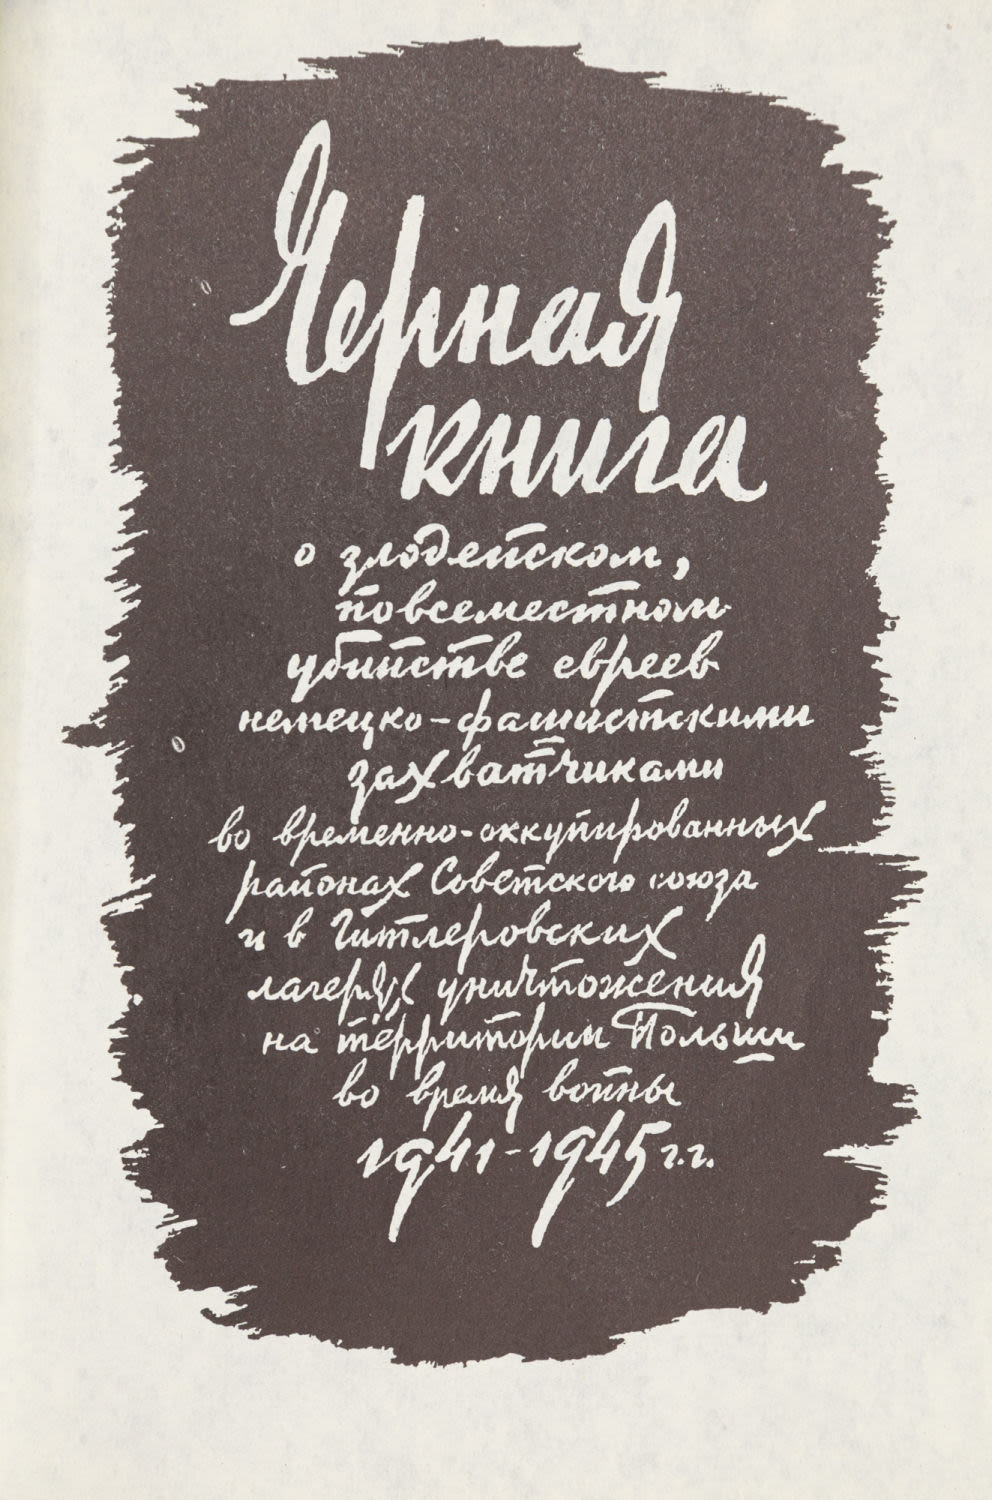 Черная
книга
о злодейском,
повсеместном
убийстве евреев
немецко-фашистскими
захватчиками
во временно-оккупированных
районах Советского союза
и в Гитлеровских
лагерях уничтожения
на территории Польши
во время войны
1941-1945 г.г.